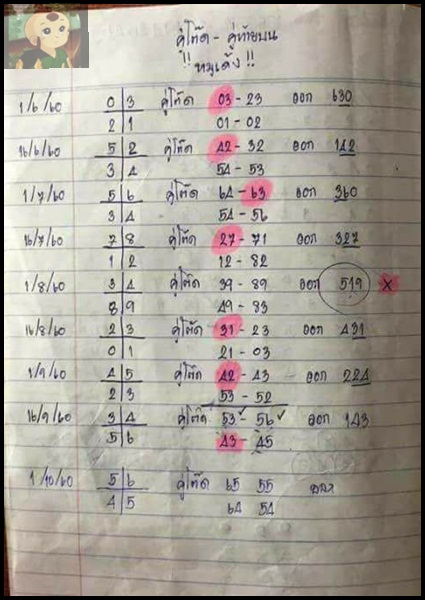 คู่โต๊ด - คู่ท้ายบน
!! หมูเด้ง !!
1/6/60 0 3 คู่โต๊ด 03 - 23 ออก 630
2 1 01 - 02
16/6/60 5 2 คู่โต๊ด 42 - 32 ออก 142
3 4 54 - 53
1/7/60 5 6 คู่โต๊ด 64 - 63 ออก 360
3 4 54 - 56
16/7/60 7 8 คู่โต๊ด 27 - 71 ออก 327
1 2 12 - 82
1/8/60 3 4 คู่โต๊ด 39 - 89 ออก 519 X
8 9 49 - 83
16/8/60 2 3 คู่โต๊ด 31 - 23 ออก 431
0 1 21 - 03
1/9/60 4 5 คู่โต๊ด 42 - 43 ออก 224
2 3 53 - 52
16/9/60 3 4 คู่โต๊ด 53 ✓ - 56 ✓ ออก 143
5 6 43 - 45
1/10/60 5 6 คู่โต๊ด 65 55 ออก
4 5 64 54